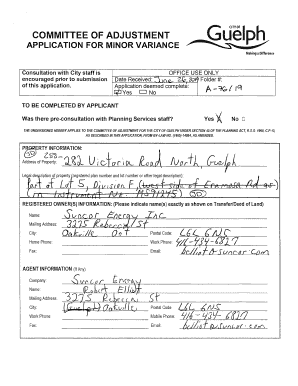 COMMITTEE OF ADJUSTMENT
APPLICATION FOR MINOR VARIANCE
CITY OF
Guelph
Making a Difference
Consultation with City staff is
encouraged prior to submission
of this application.
OFFICE USE ONLY
Date Received: June 26, 2019 Folder #:
Application deemed complete:
Yes No
A-76/19
TO BE COMPLETED BY APPLICANT
Was there pre-consultation with Planning Services staff? Yes No
THE UNDERSIGNED HEREBY APPLIES TO THE COMMITTEE OF ADJUSTMENT FOR THE CITY OF GUELPH UNDER SECTION OF THE PLANNING ACT, R.S.O. 1990, C.P.13,
AS DESCRIBED IN THIS APPLICATION, FROM BY-LAW NO. (1995)-14864, AS AMENDED.
PROPERTY INFORMATION:
Address of Property: 282 Victoria Road North, Guelph
Legal description of property (registered plan number and lot number or other legal description):
Part of Lot 5, Division F, (west side of Eramosa Rd as)
in Instrument
REGISTERED OWNER(S) INFORMATION: (Please indicate name(s) exactly as shown on Transfer/Deed of Land)
Name: Suncor Energy Inc
Mailing Address: 3275 Rebecca St
City: Oakville Ont Postal Code: L6L 6N5
Home Phone: Work Phone: 416-434-6827
Fax: Email: belliot@suncor.com
AGENT INFORMATION (If Any)
Company: Suncor Energy
Name: Robert Elliot
Mailing Address: 3275 Rebecca St
City: Oakville Postal Code: L6L 6N5
Work Phone: Mobile Phone: 416-434-6827
Fax: Email: belliot@suncor.com